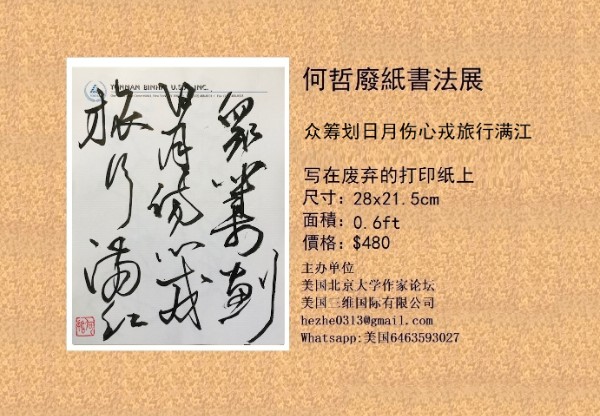 何哲廢紙書法展
众筹划日月伤心戎旅行满江
写在废弃的打印纸上
尺寸：28x21.5cm
面積：0.6ft
價格：$480
主办单位
美国北京大学作家论坛
美国三维国际有限公司
hezhe0313@gmail.com
Whatsapp:美国6463593027
YUNNAN BINHAI U.S.A. INC.
眾籌劃
日月傷心戎
旅行滿江